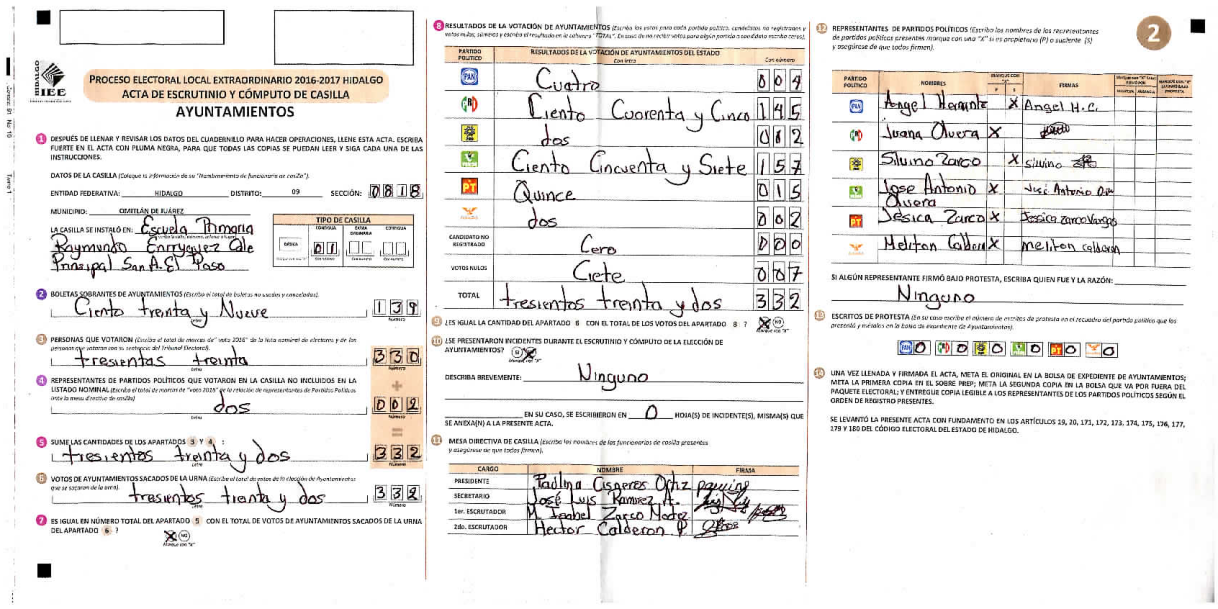 HIDALGO
IEE
PROCESO ELECTORAL LOCAL EXTRAORDINARIO 2016-2017 HIDALGO
ACTA DE ESCRUTINIO Y CÓMPUTO DE CASILLA
AYUNTAMIENTOS
1 DESPUÉS DE LLENAR Y REVISAR LOS DATOS DEL CUADERNILLO PARA HACER OPERACIONES, LLENE ESTA ACTA. ESCRIBA
FUERTE EN EL ACTA CON PLUMA NEGRA, PARA QUE TODAS LAS COPIAS SE PUEDAN LEER Y SIGA CADA UNA DE LAS
INSTRUCCIONES.
DATOS DE LA CASILLA (Coloque la información de su "Nombramiento de funcionario de casilla").
ENTIDAD FEDERATIVA: HIDALGO DISTRITO: 09 SECCIÓN: 0818
MUNICIPIO: OMITLÁN DE JUÁREZ
LA CASILLA SE INSTALÓ EN: Escuela Primaria
Raymundo Enrryquez Calle
Principal San A. El Paso
TIPO DE CASILLA
BÁSICA CONTIGUA EXTRA ORDINARIA CONTIGUA
01
2 BOLETAS SOBRANTES DE AYUNTAMIENTOS (Escriba el total de boletas no usadas y canceladas).
Ciento treinta y Nueve 139
3 PERSONAS QUE VOTARON (Escriba el total de marcas de" voto 2016" de la lista nominal de electores y de las
personas que votaron con su sentencia del Tribunal Electoral).
tresientos treinta 330
4 REPRESENTANTES DE PARTIDOS POLÍTICOS QUE VOTARON EN LA CASILLA NO INCLUIDOS EN LA
LISTADO NOMINAL (Escriba el total de marcas de "voto 2016" de la relación de representantes de Partidos Políticos
ante la mesa directiva de casilla)
dos 002
5 SUME LAS CANTIDADES DE LOS APARTADOS 3 Y 4 :
tresientos treinta y dos 332
6 VOTOS DE AYUNTAMIENTOS SACADOS DE LA URNA (Escriba el total de votos de la elección de Ayuntamientos
que se sacaron de la urna).
tresientos treinta y dos 332
7 ES IGUAL EN NÚMERO TOTAL DEL APARTADO 5 CON EL TOTAL DE VOTOS DE AYUNTAMIENTOS SACADOS DE LA URNA
DEL APARTADO 6 ?
X NO
Marque con "X"
8 RESULTADOS DE LA VOTACIÓN DE AYUNTAMIENTOS (Escriba los votos para cada partido político, candidatos no registrados y
votos nulos, súmelos y escriba el resultado en la columna "TOTAL". En caso de no recibir votos para algún partido o candidato escriba ceros).
PARTIDO POLÍTICO RESULTADOS DE LA VOTACIÓN DE AYUNTAMIENTOS DEL ESTADO
Con letra Con número
PAN Cuatro 004
PRI Ciento Cuorenta y Cinco 145
PRD dos 002
VERDE Ciento Cincuenta y Siete 157
PT Quince 015
dos 002
CANDIDATO NO REGISTRADO Cero 000
VOTOS NULOS Ciete 007
TOTAL tresientos treinta y dos 332
9 ¿ES IGUAL LA CANTIDAD DEL APARTADO 6 CON EL TOTAL DE LOS VOTOS DEL APARTADO 8 ? X NO
Marque con "X"
10 ¿SE PRESENTARON INCIDENTES DURANTE EL ESCRUTINIO Y CÓMPUTO DE LA ELECCIÓN DE
AYUNTAMIENTOS? SI X
DESCRIBA BREVEMENTE: Ninguno
EN SU CASO, SE ESCRIBIERON EN 0 HOJA(S) DE INCIDENTE(S), MISMA(S) QUE
SE ANEXA(N) A LA PRESENTE ACTA.
11 MESA DIRECTIVA DE CASILLA (Escriba los nombres de los funcionarios de casilla presentes
y asegúrese de que todos firmen).
CARGO NOMBRE FIRMA
PRESIDENTE Paulina Cisneros Ortiz Paulina
SECRETARIO José Luis Ramirez A.
1er. ESCRUTADOR M. Isabel Zarco
2do. ESCRUTADOR Hector Calderon P
12 REPRESENTANTES DE PARTIDOS POLÍTICOS (Escriba los nombres de los representantes
de partidos políticos presentes marque con una "X" si es propietario (P) o suplente (S)
y asegúrese de que todos firmen).
2
PARTIDO POLÍTICO NOMBRES P S FIRMAS
PAN Angel X Angel H.C.
PRI Juana Olvera X
PRD Silvino Zarco X Silvino
VERDE Jose Antonio Olvera X José Antonio
PT Jesica Zarco X Jessica Zarco Vargas
Meliton Calderon X meliton calderon
SI ALGÚN REPRESENTANTE FIRMÓ BAJO PROTESTA, ESCRIBA QUIEN FUE Y LA RAZÓN:
Ninguno
13 ESCRITOS DE PROTESTA (En su caso escriba el número de escritos de protesta en el recuadro del partido político que los
presentó y mételos en la bolsa de expediente de Ayuntamientos).
PAN 0 PRI 0 PRD 0 VERDE 0 PT 0 0
14 UNA VEZ LLENADA Y FIRMADA EL ACTA, META EL ORIGINAL EN LA BOLSA DE EXPEDIENTE DE AYUNTAMIENTOS;
META LA PRIMERA COPIA EN EL SOBRE PREP; META LA SEGUNDA COPIA EN LA BOLSA QUE VA POR FUERA DEL
PAQUETE ELECTORAL; Y ENTREGUE COPIA LEGIBLE A LOS REPRESENTANTES DE LOS PARTIDOS POLÍTICOS SEGÚN EL
ORDEN DE REGISTRO PRESENTES.
SE LEVANTÓ LA PRESENTE ACTA CON FUNDAMENTO EN LOS ARTÍCULOS 19, 20, 171, 172, 173, 174, 175, 176, 177,
179 Y 180 DEL CÓDIGO ELECTORAL DEL ESTADO DE HIDALGO.